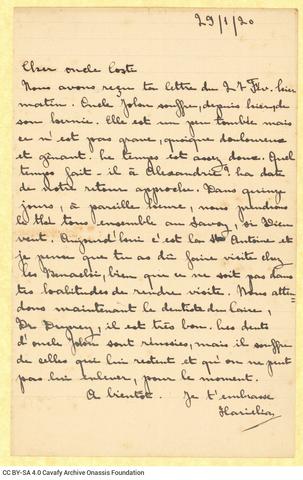 29/1/20
Cher oncle Costa
Nous avons reçu ta lettre du 27 hier
matin. Oncle John souffre, depuis hier, de
son hernie. Elle est un peu tombée mais
ce n'est pas grave, quoique douloureux
et gênant. Le temps est assez doux. Quel
temps fait-il à Alexandrie? La date
de notre retour approche. Dans quinze
jours, à pareille heure, nous prendrons
le thé tous ensemble au Savoy, si Dieu
veut. Aujourd'hui c'est la Ste Antoine et
je pense que tu as dû faire visite chez
les, bien que ce ne soit pas dans
tes habitudes de rendre visite. Nous atten-
dons maintenant le dentiste du Caire,
Dr, il est très bon. Les dents
d'oncle John sont réussies, mais il souffre
de celles qui lui restent et qu'on ne peut
pas lui enlever, pour le moment.
A bientôt. Je t'embrasse
Hariclia
CC BY-SA 4.0 Cavafy Archive Onassis Foundation